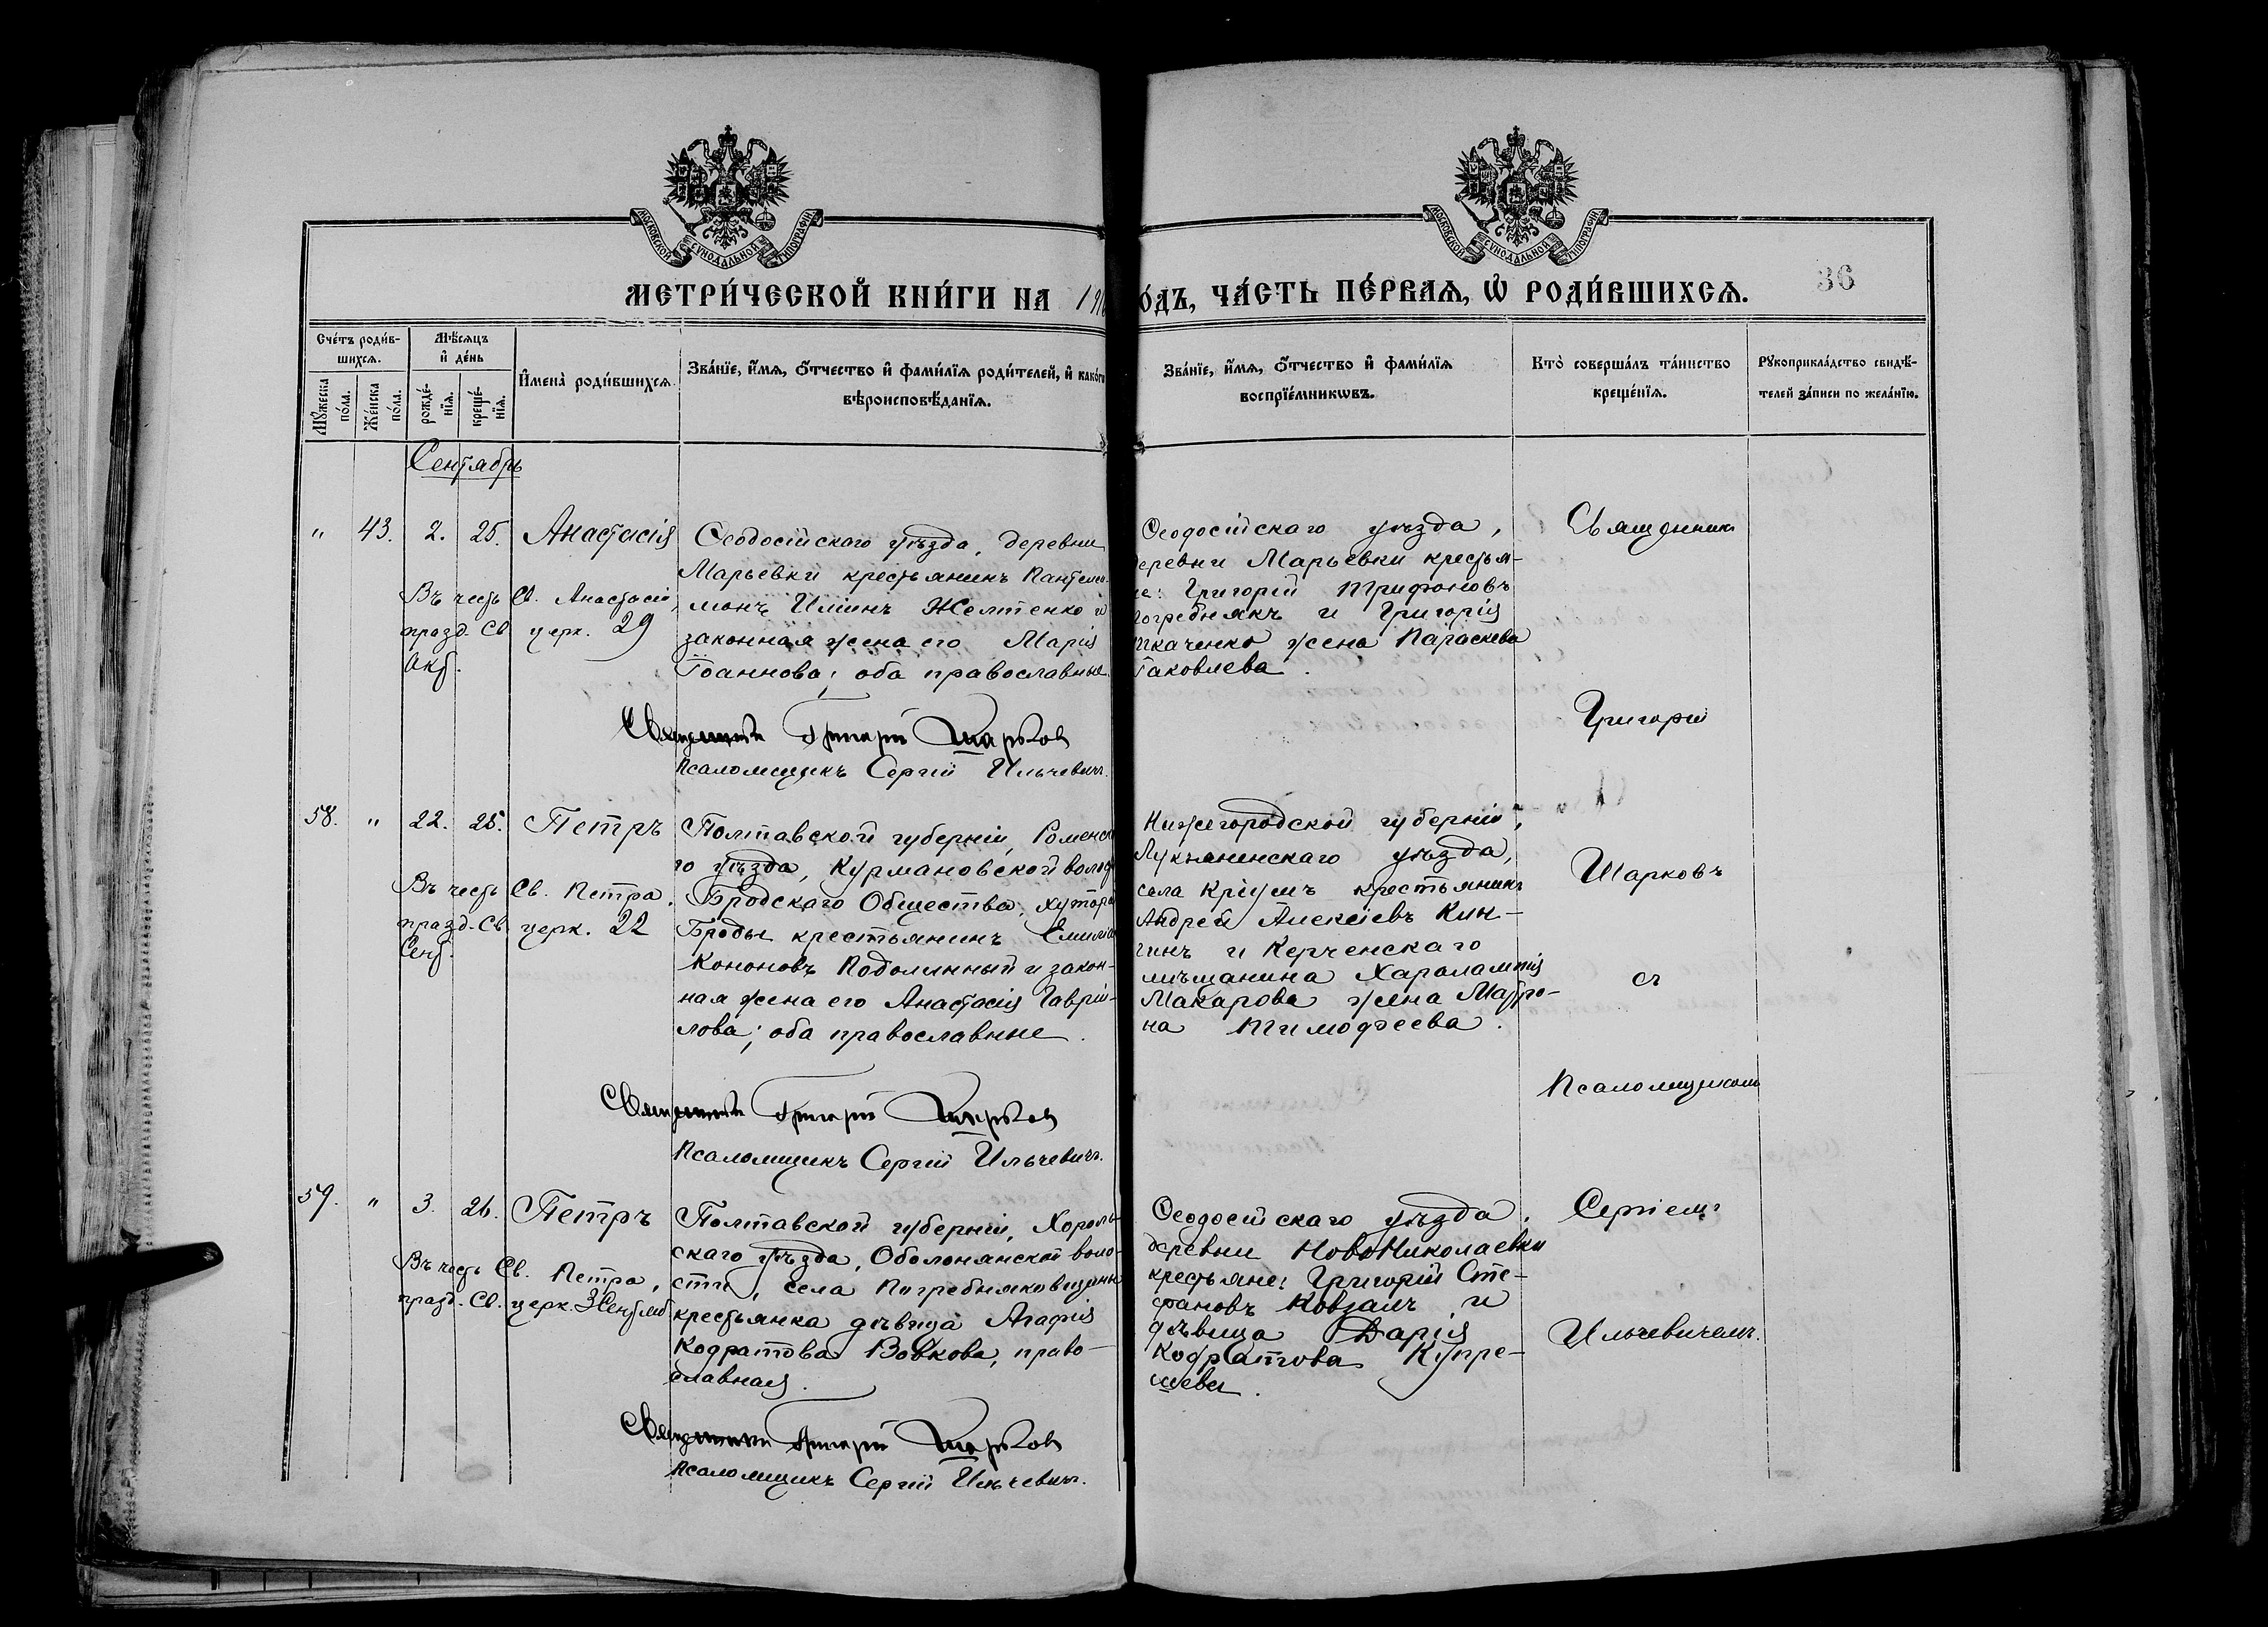 МОСКОВСКОЙ СѴНОДАЛЬНОЙ ТИПОГРАФІИ
МОСКОВСКОЙ СѴНОДАЛЬНОЙ ТИПОГРАФІИ
МЕТРИ́ЧЕСКОЙ КНИ́ГИ НА 191
О́ДЪ, ЧА́СТЬ ПЕ́РВАѦ, Ѡ҆ РОДИ́ВШИХСѦ.
36
Сче́тъ роди́в-
шихсѧ.
Мꙋ́жеска
по́ла.
Же́нска
по́ла.
Мѣ́сѧцъ
и҆ де́нь
рожде́-
нїѧ.
креще́-
нїѧ.
И҆мена̀ роди́вшихсѧ
Зва́нїе, и҆́мѧ, ѻ҆́тчество и҆ фами́лїѧ роди́телей, и҆ како́гѡ
вѣроисповѣ́данїѧ.
Зва́нїе, и҆́мѧ, ѻ҆́тчество и҆ фами́лїѧ
воспрїе́мникѡвъ.
Кто̀ соверша́лъ та́инство
креще́нїѧ.
Рꙋкоприкла́дство свидѣ́-
телей за́писи по жела́нїю.
Сентябрь
" 43. 2. 25. Анастасія
Въ честь Св. Анастасіи,
празд. Св. церк. 29
Окт.
Ѳеодосійскаго уѣзда, деревни
Марьевки крестьянинъ Пантелеи-
монъ Илиинъ Желтенко и
законная жена его Марія
Іоаннова; оба православные
Священникъ Григорій Шарковъ
Псаломщикъ Сергій Ильчевичъ.
Ѳеодосійскаго уѣзда,
деревни Марьевки крестья-
не: Григорій Трифоновъ
Погребнякъ и Григорія
Ткаченко жена Параскева
Іаковлева.
Священникъ
Григорій
58. " 22. 25. Петръ
Въ честь Св. Петра,
празд. Св. церк. 22
Сент.
Полтавской губерніи, Роменска
го уѣзда, Курмановской волос
Бродскаго Общества, хутора
Броды крестьянинъ Емиліа
Кононовъ Подолинный и закон-
ная жена его Анастасія Гаврії-
лова; оба православные.
Священникъ Григорій Шарковъ
Псаломщикъ Сергій Ильчевичъ.
Нижегородской губерніи,
Лукьяненскаго уѣзда,
села Кріушъ крестьянинъ
Андрей Алексіевъ Кин-
гинъ и Керченскаго
мѣщанина Харалампія
Макарова жена Матро-
на Тимофеева.
Шарковъ
съ
Псаломщикомъ
59. " 3. 26. Петръ
Въ честь Св. Петра,
празд. Св. церк. 3 Сентяб
Полтавской губерніи, Хороль-
скаго уѣзда, Оболонянской воло-
сти, села Погребняковщины
крестьянка дѣвица Агафія
Кодратова Вовкова, право-
славная.
Священникъ Григорій Шарковъ
Псаломщикъ Сергій Ильчевичъ.
Ѳеодосійскаго уѣзда,
деревни НовоНиколаевки
крестьяне: Григорій Сте-
фановъ Ковзалъ и
дѣвица Дарія
Кодратова Купре-
шева.
Сергіемъ
Ильчевичемъ.